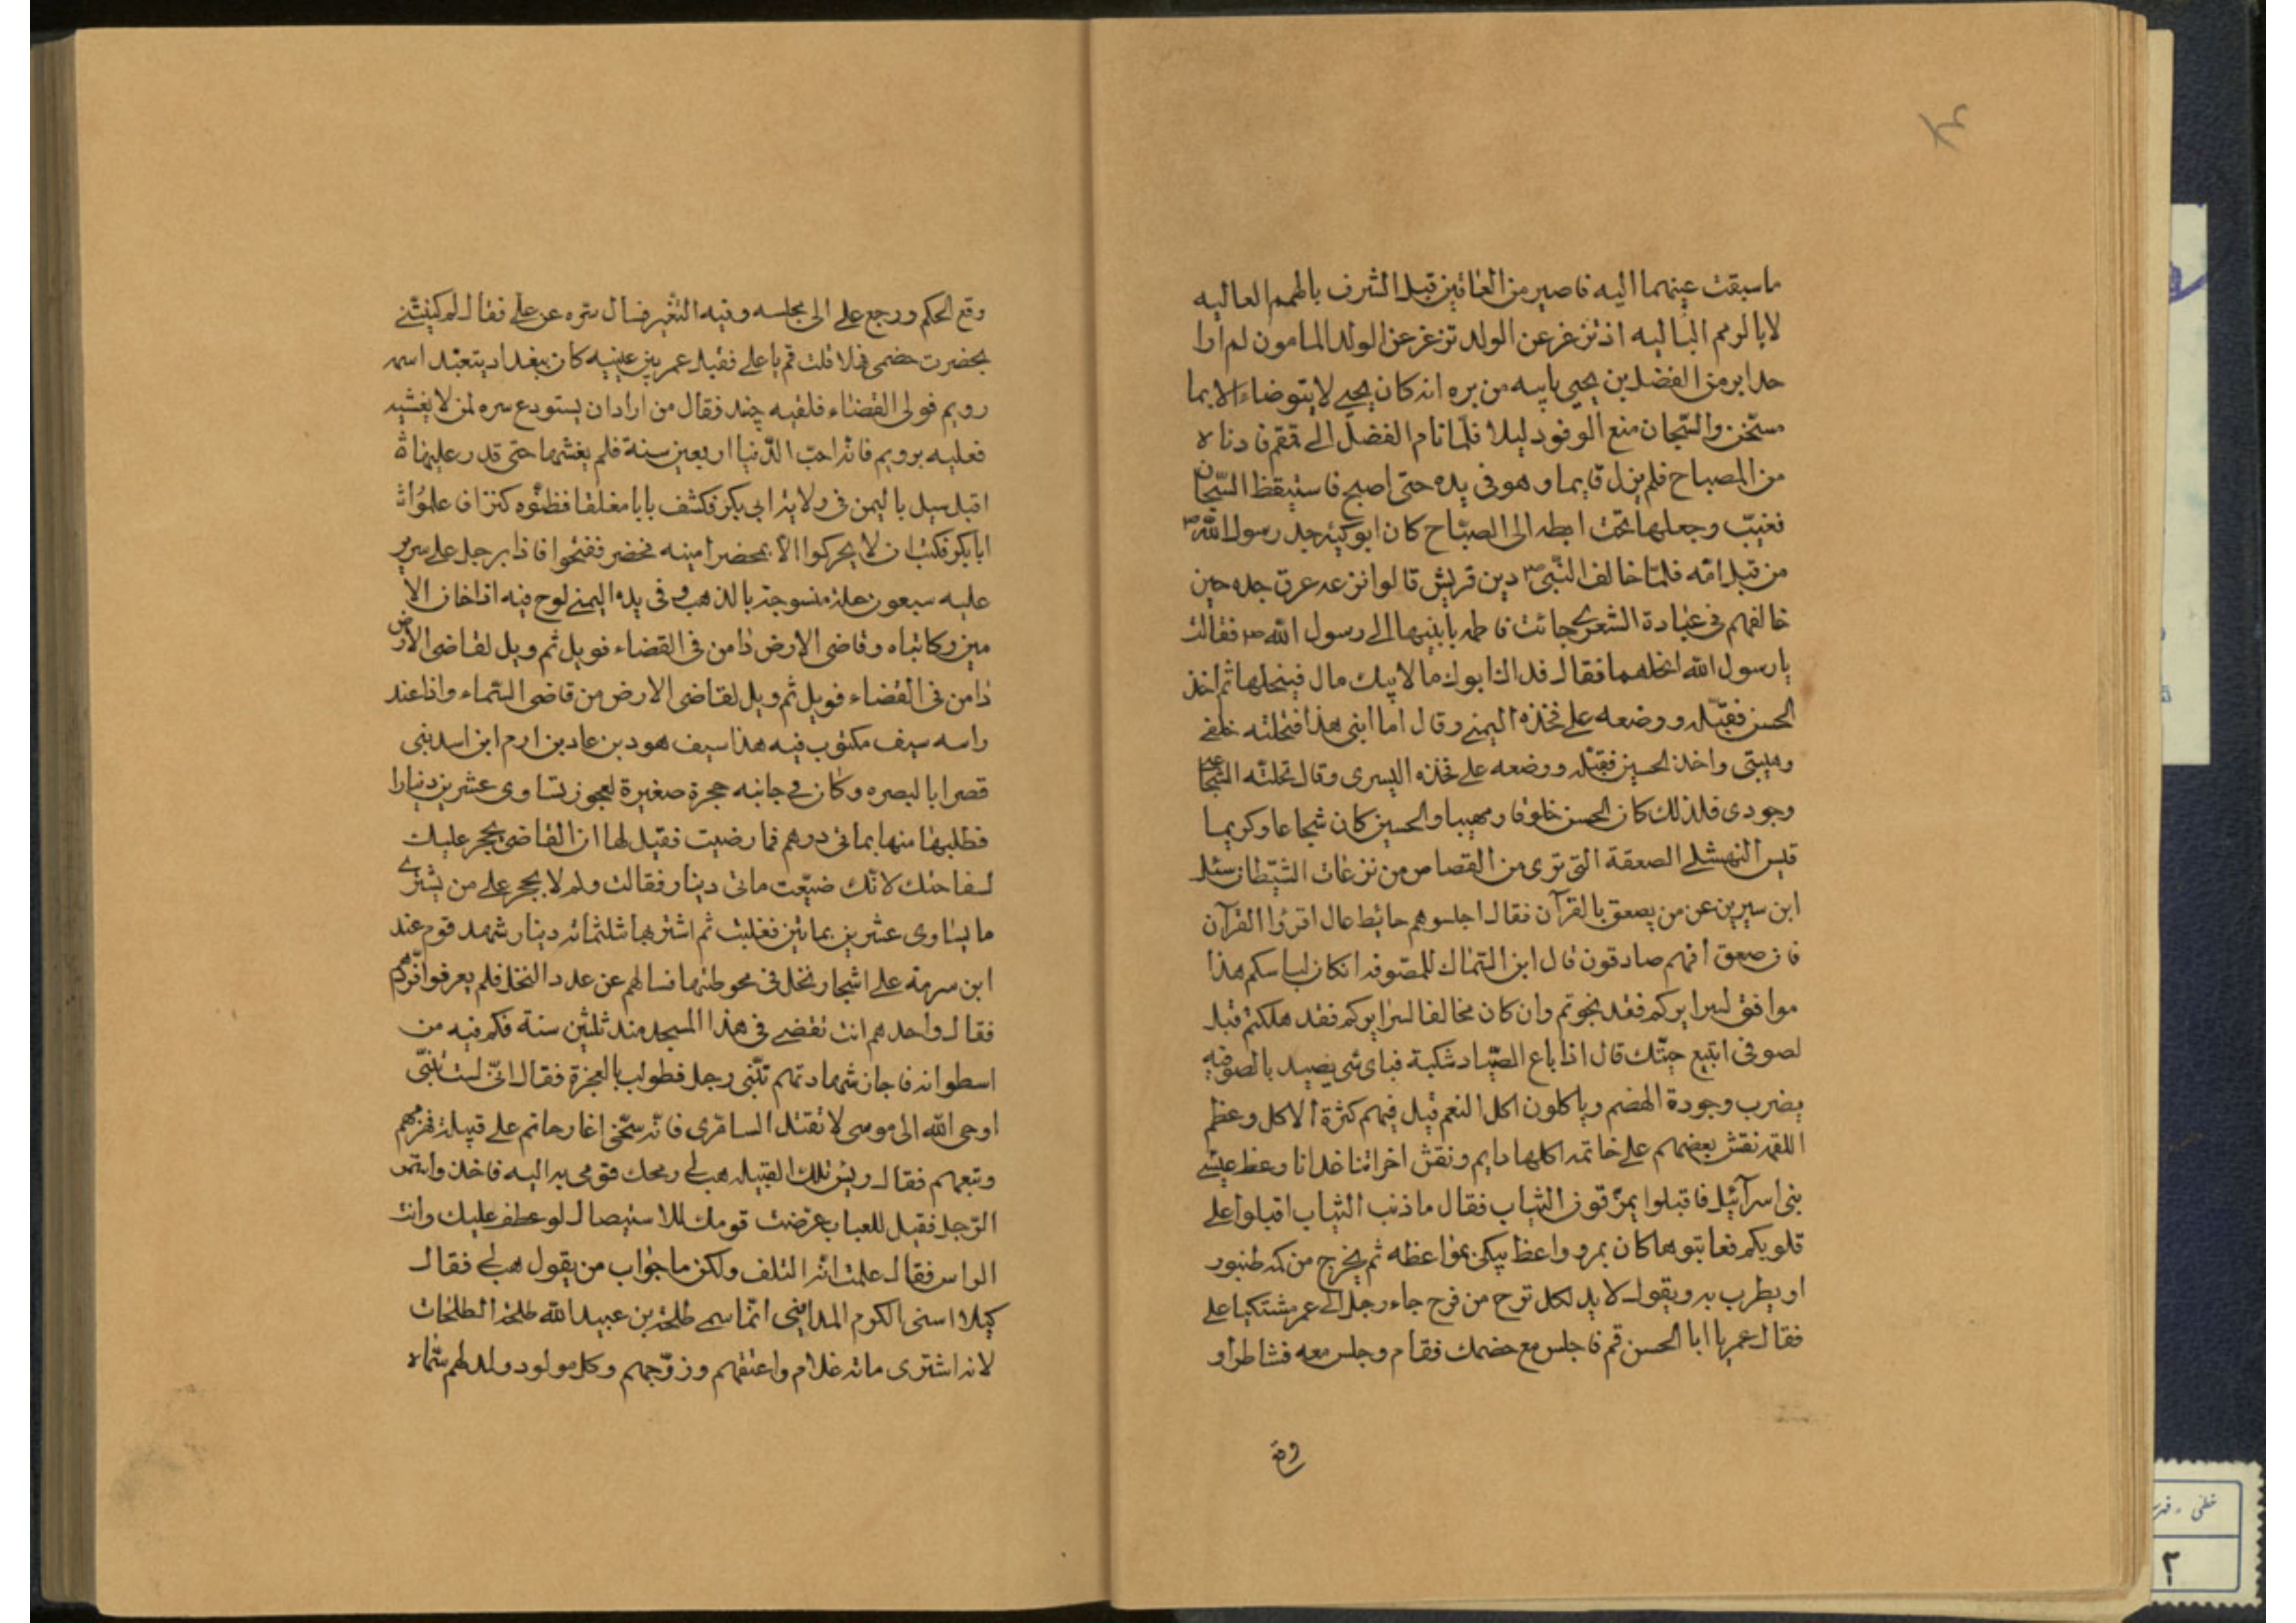 ما سبقت عينهما اليه فاصير من الغائبين قبل الشرف بالهمم العاليه
لا بالرمم الباليه اذ تزعزع عن الولد تزعزع عن الولد المامون لم ارا
حدا ابر من الفضل بن يحيى بابيه من بره انه كان يحيى لا يتوضاء الا بما
مسخن والسّجان منع الوقود ليلا فلمّا نام الفضل الى قمقم فادناه
من المصباح فلم يزل قايما وهو فى يده حتى اصبح فاستيقظ السّجان
فغيّب وجعلها تحت ابطه الى الصباح كان ابو كبشه جد رسول اللّه ص
من قبل امّه فلمّا خالف النّبى ص دين قريش قالوا نزعه عرق جده حين
خالفهم فى عبادة الشعرى جائت فاطمه بابنيها الى رسول الله ص فقالت
يا رسول الله انحلهما فقال فداك ابوك ما لابيك مال فينحلهما ثم اخذ
الحسن فقبّله ووضعه على فخذه اليمنى وقال اما ابنى هذا فنحلته خلقى
وهيبتى واخذ الحسين فقبّله ووضعه على فخذه اليسرى وقال نحلته الشجاعة
وجودى فلذلك كان الحسن خلوقا ومهيبا والحسين كان شجاعا وكريما
قيس النهشلى الصعقة التى ترى من القصاص من نزعات الشيطان سئل
ابن سيرين عن من يصعق بالقرآن فقال اجلسوهم حائط عال اقرؤا القرآن
فان صعق افهم صادقون قال ابن السّماك للمصّوفه ان كان لباسكم هذا
موافق لسرايركم فقد نجوتم وان كان مخالفا لسرايركم فقد هلكتم قيل
لصوفى ابتيع جبّتك قال اذا باع الصيّاد شبكة فباى شى يصيد بالصوفيه
يضرب وجودة الهضم وياكلون اكل النعم قيل فيهم كثرة الاكل وعظم
اللقمه نقش بعضهم على خاتمه اكلها دايم ونقش اخر اتنا غدانا وعظ عيسى
بنى اسرآئيل فاقبلوا يمزّقون الثياب فقال ما ذنب الثياب اقبلوا على
قلوبكم فعاتبوها كان بمرو واعظ يبكى بمواعظه ثم يخرج من كمه طنبور
او يطرب به ويقول لا بد لكل ترح من فرح جاء رجل الى عمر مشتكيا على
فقال عمر يا ابا الحسن قم فاجلس مع خصمك فقام وجلس معه فتناظراو
وقع الحكم ورجع على الى مجلسه وفيه التغّير فسال سّره عن على فقال لم كنيتنى
بحضرت خصمى فهلا قلت قم يا على فقبل عمر بين عينيه كان ببغداد يتعبّد اسمه
رويم فولى القضاء فلقيه جنيد فقال من اراد ان يستودع سره لمن لا يفشيه
فعليه برويم فانه احبّ الدّنيا اربعين سنة فلم يفشها حتى قدر عليها
اقبل سيل باليمن فى ولاية ابى بكر فكشف بابا مغلقا فظنّوه كنزا فاعلموا
ابابكر فكتب ان لا يحركوا الّا بمحضر امينه فحضر ففتحوا فاذا برجل على سرير
عليه سبعون حلة منسوجة بالذهب وفى يده اليمنى لوح فيه اذا خان الا
مير وكاتباه وقاضى الارض داهن فى القضاء فويل ثم ويل لقاضى الارض
داهن فى القضاء فويل ثم ويل لقاضى الارض من قاضى السّماء واذا عند
راسه سيف مكتوب فيه هذا سيف هود بن عاد بن ارم ابن اسد بنى
قصرا بالبصره وكان فى جانبه حجرة صغيرة لعجوز يساوى عشرين دينارا
فطلبها منها بمائى درهم فما رضيت فقيل لها ان القاضى يحجر عليك
لسفاحتك لانّك ضيّعت مائى دينار فقالت ولم لا يحجر على من يشترى
ما يساوى عشرين بمائين فغلبت ثم اشترها بثلثمائه دينار شهد قوم عند
ابن سرمة على اشجار نخل فى محوطتها فسالهم عن عدد النخل فلم يعرفوا فردّهم
فقال واحدهم انت تقضى فى هذا المسجد منذ ثلثين سنة فكم فيه من
اسطوانه فاجاز شهادتهم تنّبى رجل فطولب بالمعجزة فقال انّى لست بنبّى
اوحى اللّه الى موسى لا تقتل السامرى فانّه سخّى اغار حاتم على قبيلة فهزمهم
وتبعهم فقال رئيس تلك القبيله هب لى رمحك فرمى به اليه فاخذ واستمر
الرّجل فقيل للعباب عرضت قومك للاستيصال لو عطف عليك وانت
الراس فقال علمت انّه التلف ولكن ما جواب من يقول هب لى فقال
كيلا اسنى الكرم المداينى انّما سمى طلحة بن عبيد اللّه طلحة الطلحات
لانه اشترى مائه غلام واعتقهم وزوّجهم وكل مولود ولد لهم سّماه